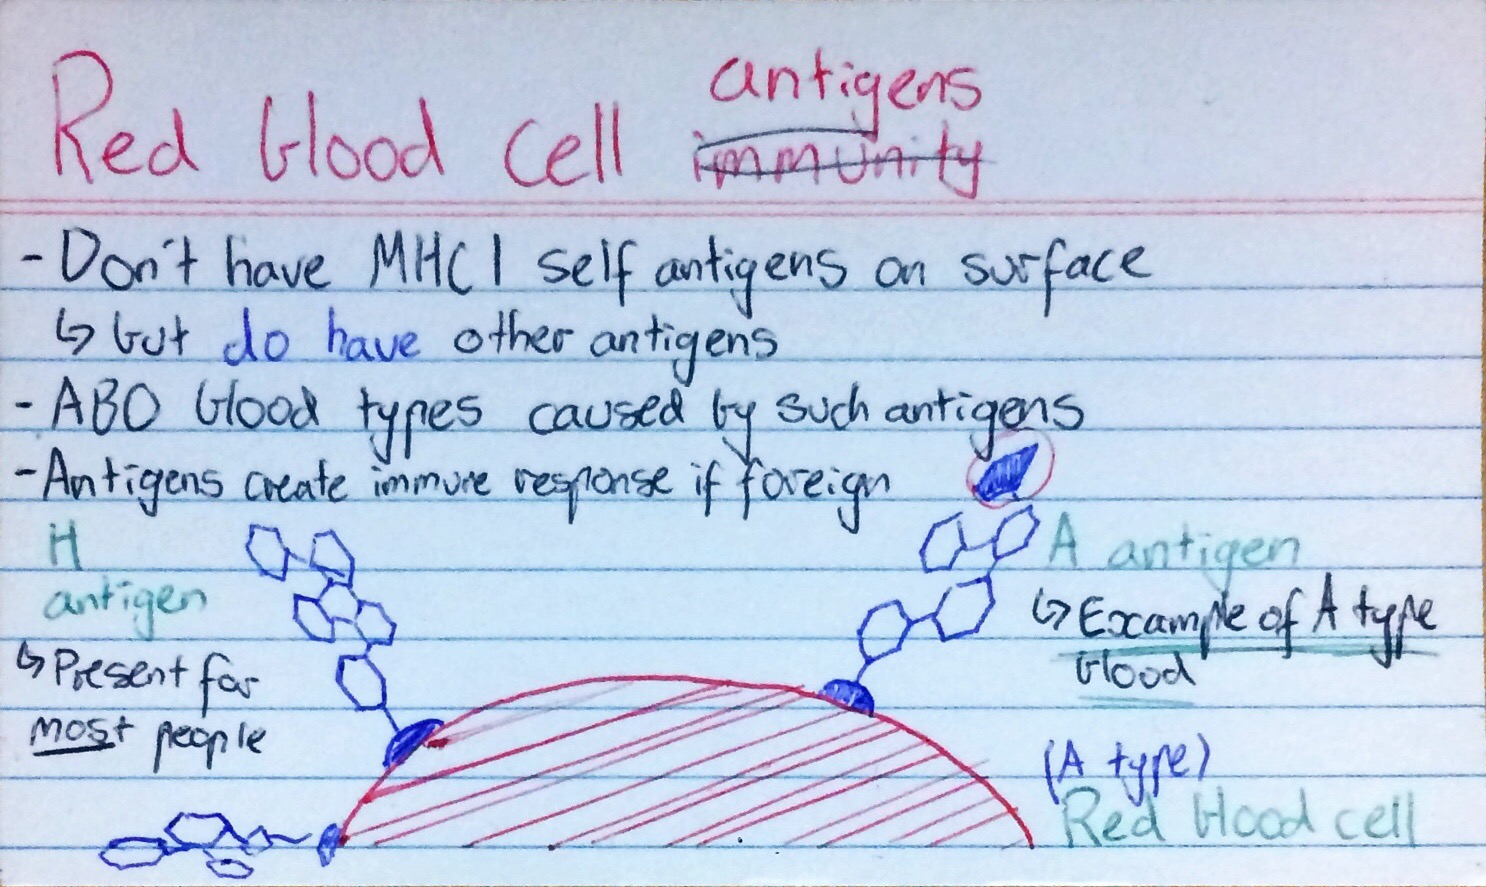 Red blood cell antigens
immunity
- Don't have MHC I self antigens on surface
↳ but do have other antigens
- ABO blood types caused by such antigens
- Antigens create immune response if foreign
H
antigen
↳ Present for
most people
A antigen
↳ Example of A type
blood
(A type)
Red blood cell